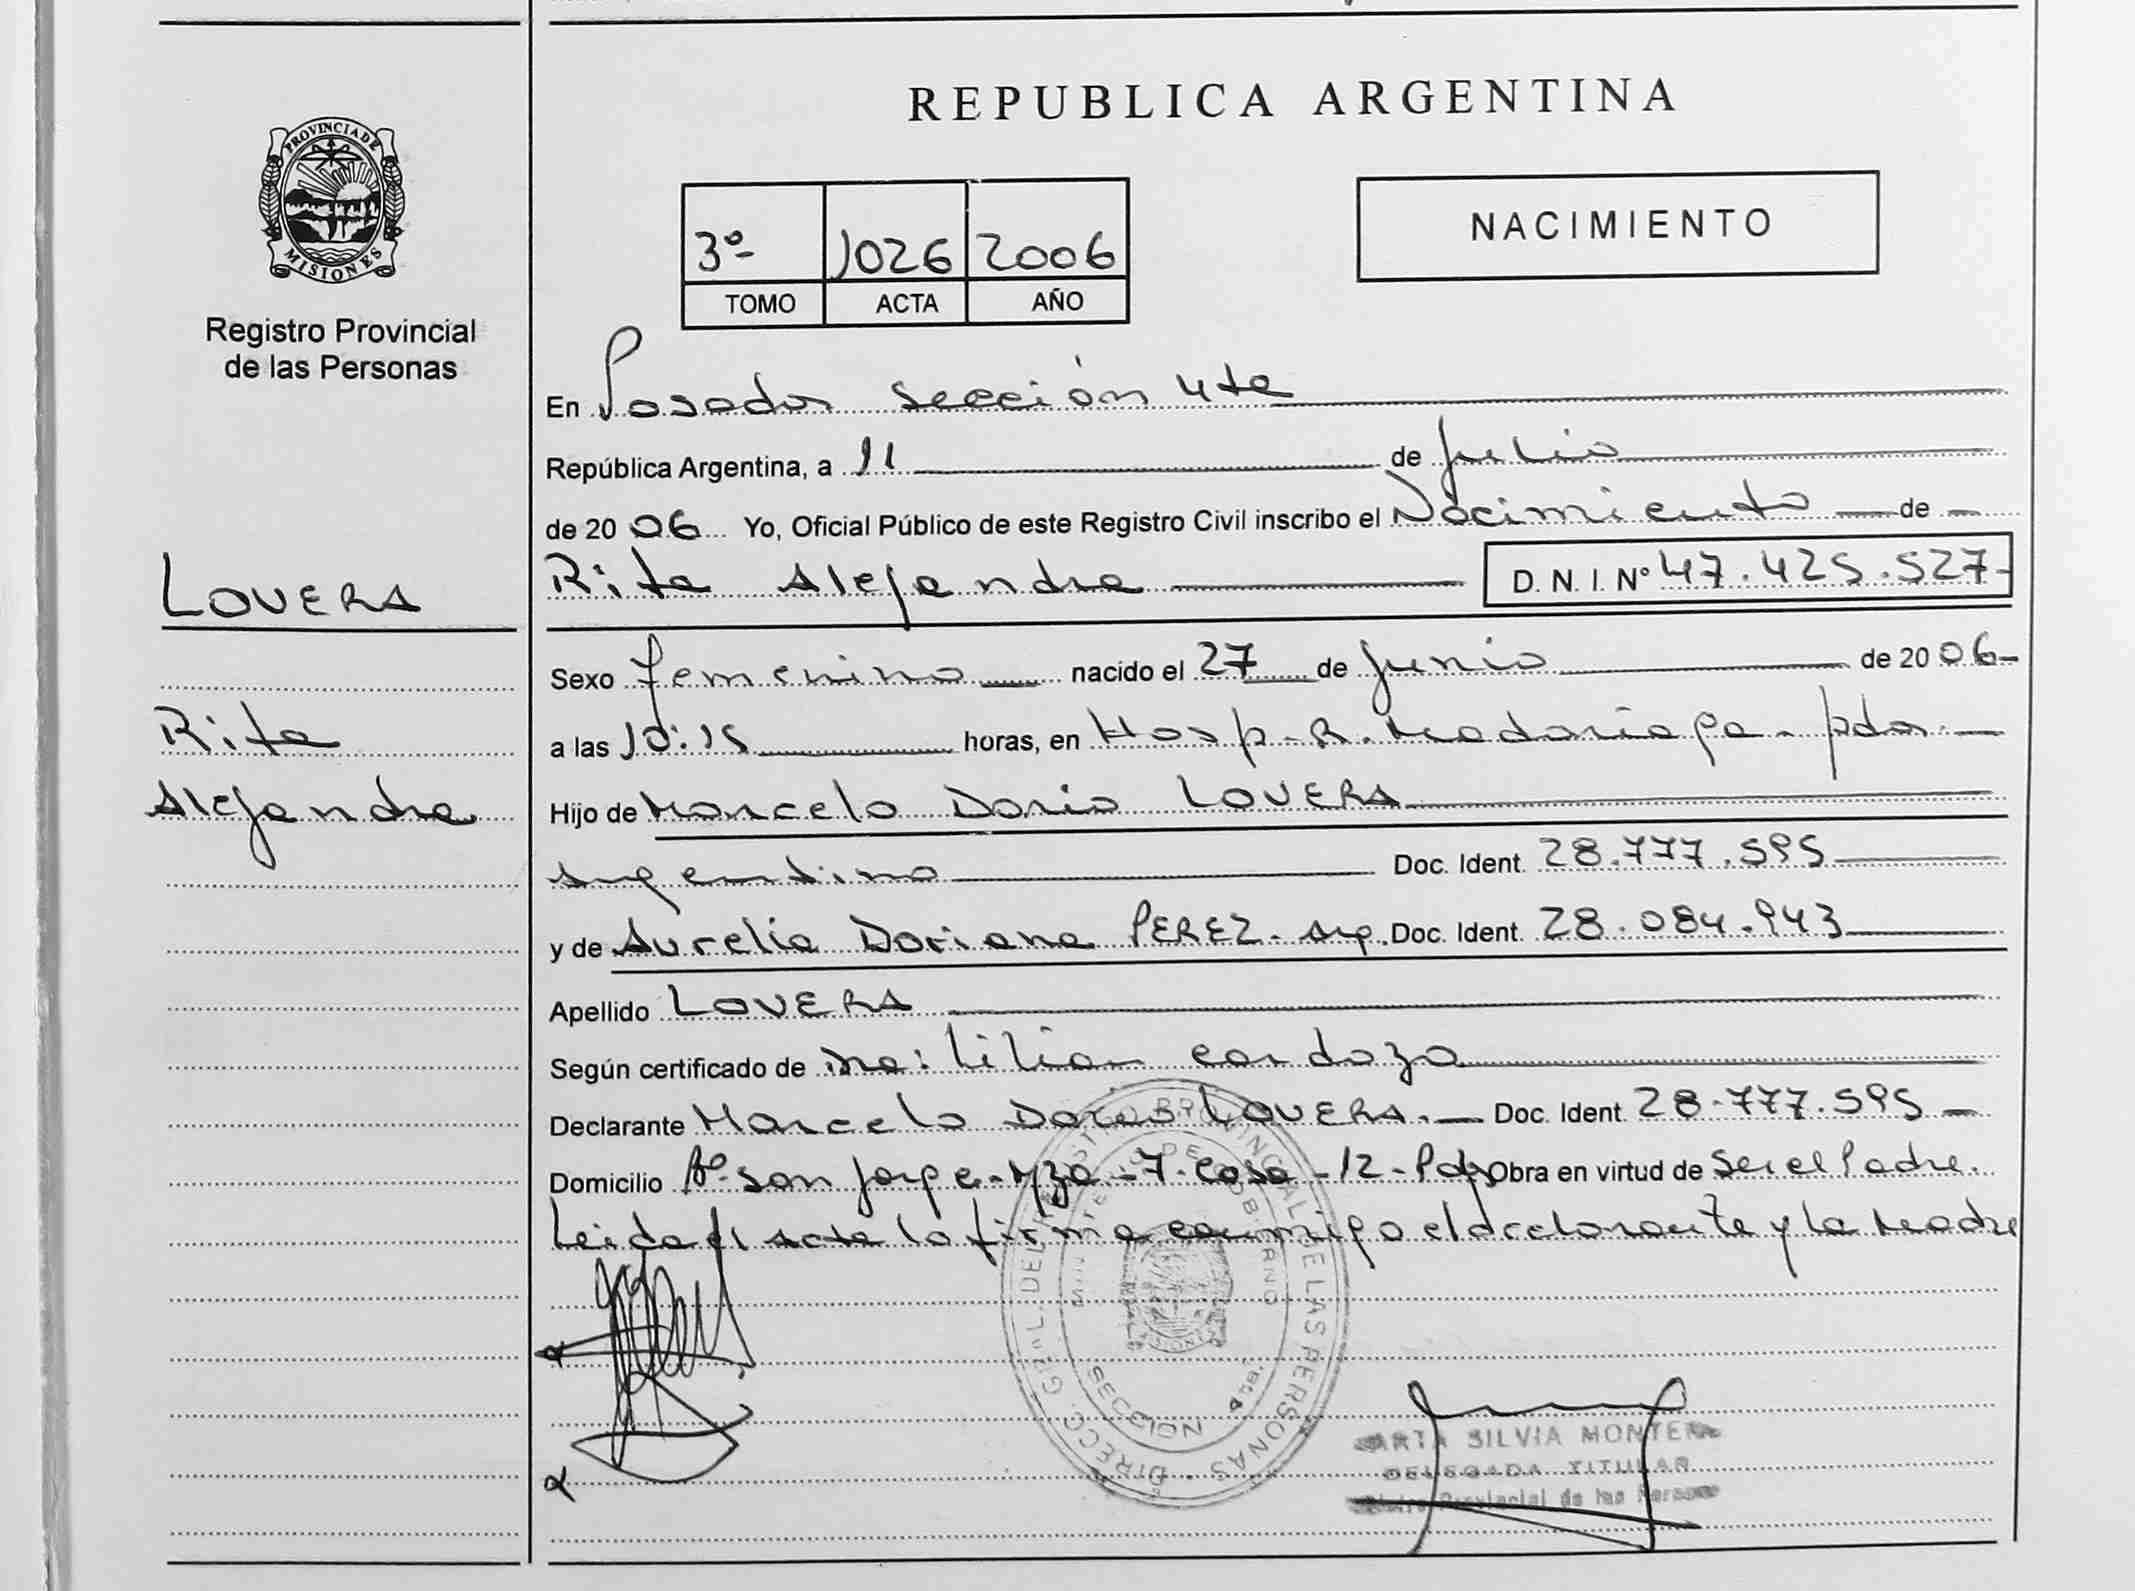 REPUBLICA ARGENTINA
PROVINCIA DE
MISIONES
Registro Provincial
de las Personas
3º 1026 2006
TOMO ACTA AÑO
NACIMIENTO
En Posadas sección 4ta
República Argentina, a 11 de julio
de 2006 Yo, Oficial Público de este Registro Civil inscribo el Nacimiento de
LOVERA
Rita Alejandra D. N. I. Nº 47.425.527
Sexo femenino nacido el 27 de junio de 2006
Rita
a las 10:15 horas, en Hosp. R. Madariaga - pdas.
Alejandra
Hijo de Marcelo Dario LOVERA
argentino Doc. Ident. 28.777.595
y de Aurelia Doriana PEREZ - arg. Doc. Ident. 28.084.943
Apellido LOVERA
Según certificado de Lilian Cardozo
Declarante Marcelo Dario LOVERA. Doc. Ident. 28.777.595
Domicilio Bº San Jorge - Mza - 7 - Casa - 12 - Pdas Obra en virtud de ser el Padre.
Leida el acta la firma conmigo el declarante y la Madre
DIRECC. GRAL. DEL REGISTRO PROVINCIAL DE LAS PERSONAS
MINISTERIO DE GOBIERNO
SECCION 4ta.
SILVIA
DELEGADA TITULAR
Provincial de las